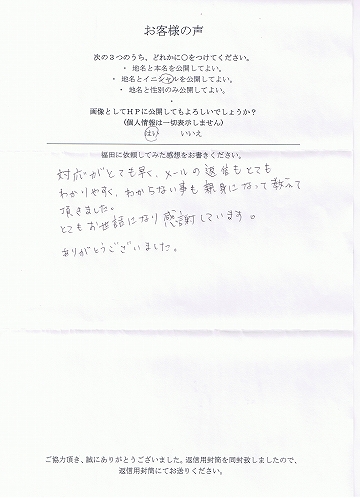 お客様の声
次の3つのうち、どれかに○をつけてください。
・ 地名と本名を公開してよい。
・ 地名とイニシャルを公開してよい。
・ 地名と性別のみ公開してよい。
・
画像としてHPに公開してもよろしいでしょうか？
(個人情報は一切表示しません)
はい いいえ
福田に依頼してみた感想をお書きください。
対応がとても早く、メールの返信もとても
わかりやすく、わからない事も親身になって教えて
頂きました。
とてもお世話になり感謝しています。
ありがとうございました。
ご協力頂き、誠にありがとうございました。返信用封筒を同封致しましたので、
返信用封筒にてお送りください。